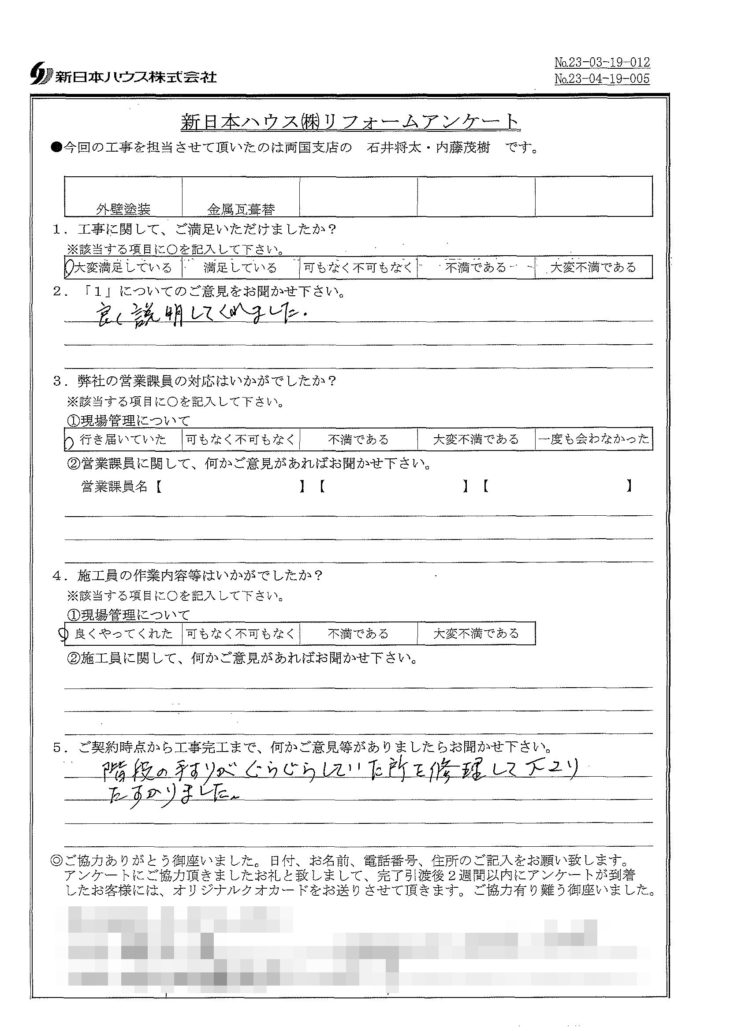 新日本ハウス株式会社
No.23-03-19-012
No.23-04-19-005
新日本ハウス㈱リフォームアンケート
●今回の工事を担当させて頂いたのは両国支店の 石井将太・内藤茂樹 です。
外壁塗装 金属瓦葺替
1．工事に関して、ご満足いただけましたか？
※該当する項目に○を記入して下さい。
大変満足している 満足している 可もなく不可もなく 不満である 大変不満である
2．「1」についてのご意見をお聞かせ下さい。
良く説明してくれました.
3．弊社の営業課員の対応はいかがでしたか？
※該当する項目に○を記入して下さい。
①現場管理について
行き届いていた 可もなく不可もなく 不満である 大変不満である 一度も会わなかった
②営業課員に関して、何かご意見があればお聞かせ下さい。
営業課員名【 】【 】【 】
4．施工員の作業内容等はいかがでしたか？
※該当する項目に○を記入して下さい。
①現場管理について
良くやってくれた 可もなく不可もなく 不満である 大変不満である
②施工員に関して、何かご意見があればお聞かせ下さい。
5．ご契約時点から工事完工まで、何かご意見等がありましたらお聞かせ下さい。
階段の手すりがぐらぐらしていた所を修理して下さり
たすかりました。
◎ご協力ありがとう御座いました。日付、お名前、電話番号、住所のご記入をお願い致します。
アンケートにご協力頂きましたお礼と致しまして、完了引渡後2週間以内にアンケートが到着
したお客様には、オリジナルクオカードをお送りさせて頂きます。ご協力有り難う御座いました。